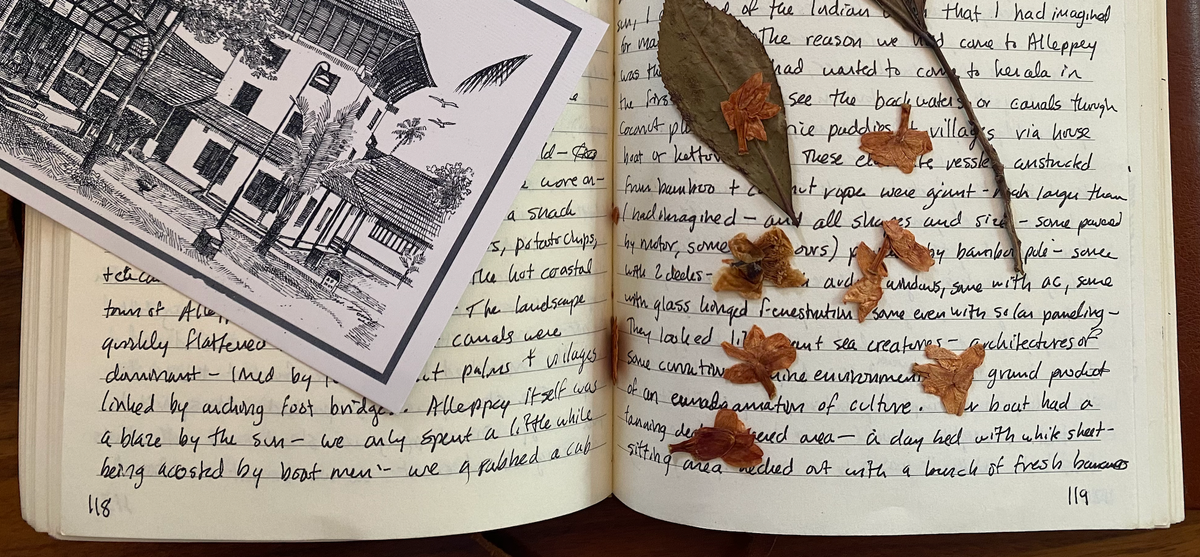 wore on-
a snack
potato chips,
the hot coastal
town of
The landscape
quickly flattened canals were
dominant - lined by palms + villages
linked by arching foot bridges. Alleppey itself was
a blaze by the sun - we only spent a little while
being acosted by boat men - we grabbed a cab
118
sun, I of the Indian that I had imagined
for The reason we had come to Alleppey
was had wanted to come to kerala in
the first see the backwaters or canals through
coconut paddies + villages via house
boat or These vessels constructed
from bamboo + rope were giant - much larger than
I had imagined - and all shapes and sizes - some powered
by motor, some ours) by bamboo pole - some
with 2 decks - windows, some with ac, some
with glass louged fenestration some even with solar paneling -
They looked giant sea creatures - architectures of
some environment grand product
of an of culture. boat had a
tanning area - a day bed with white sheet -
sitting area decked out with a bunch of fresh bananas
119